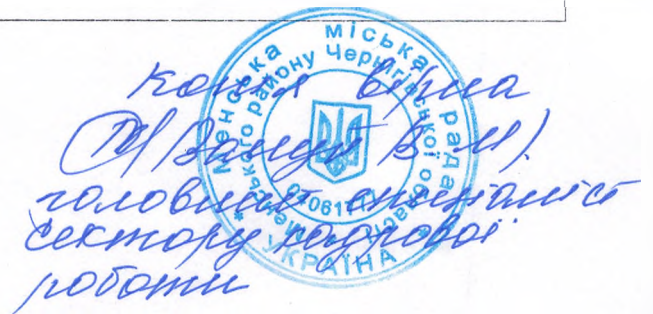 Менська міська рада
Менського району Чернігівської області
* УКРАЇНА *
копія вірна
головний спеціаліст
сектору кадрової
роботи